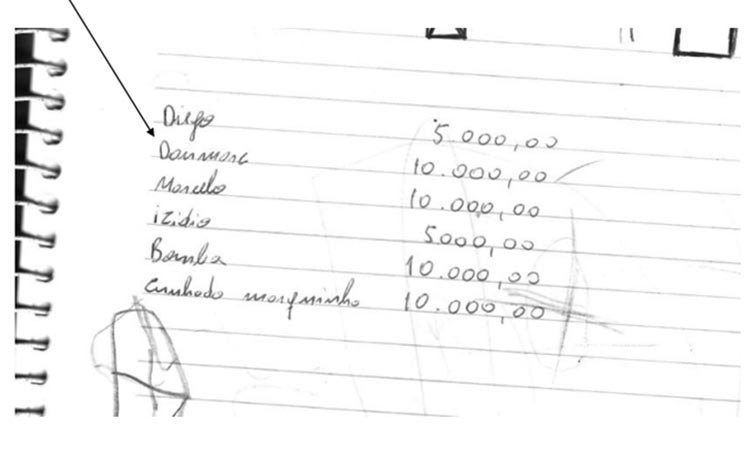 Diego 5.000,00
Danmarc 10.000,00
Marcelo 10.000,00
izidio 5000,00
Bomba 10.000,00
Cunhado marquinho 10.000,00